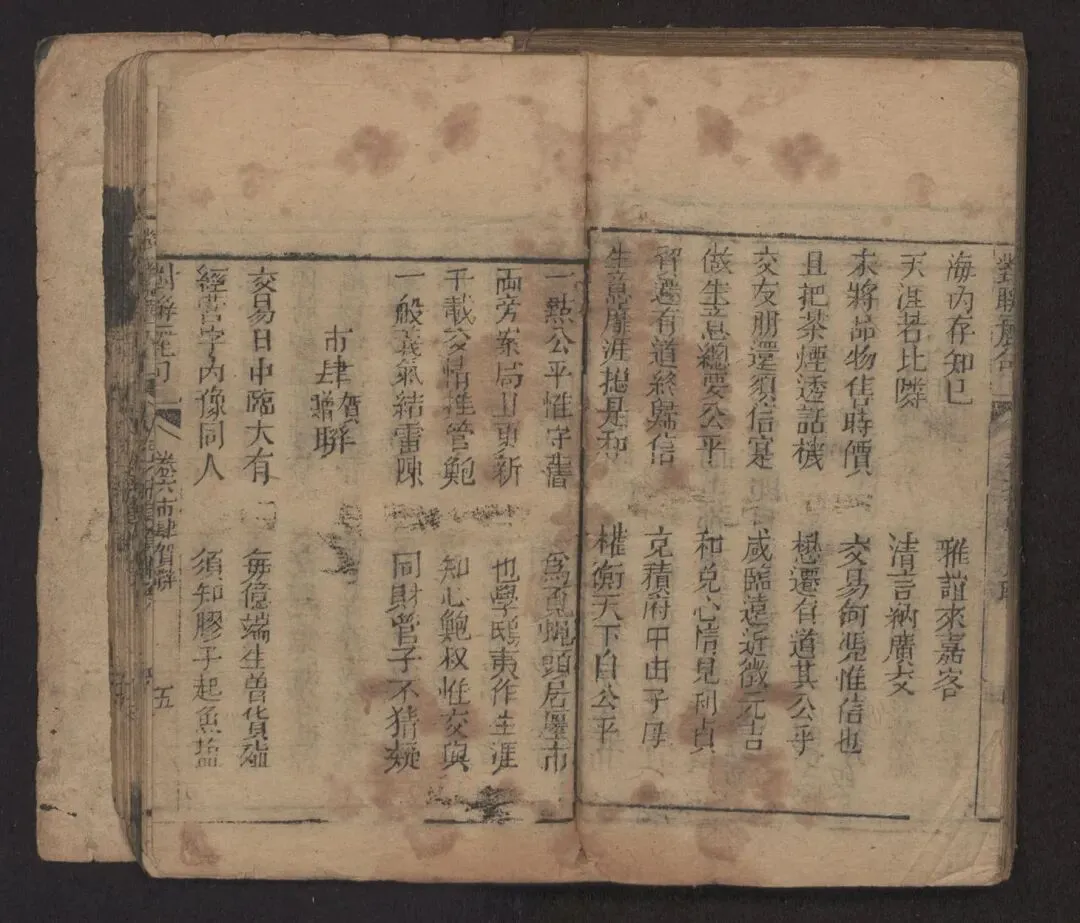 海內存知已　雅誼來嘉客
天涯若比隣　清言納廣交
未將品物售時價　交易何憑惟信也
且把茶煙透話機　懋遷有道其公乎
交友朋還須信寔　咸臨遠近徵元吉
做生意總要公平　和兌心情見利貞
貿遷有道終歸信　克積府由子母
生意靡涯總是和　權衡天下自公平
一點公平惟守舊　為覓蝇頭居市
両旁案局且更新　也學鴟夷作生涯
千載交情推管鮑　知心鮑叔惟交與
一般義氣結雷陳　同財管子不猜疑
市肆賀贈聯
交易日中臨大有　每億端生貨殖
經營宇內像同人　須知膠子起魚塩
卷六市肆賀聯　五